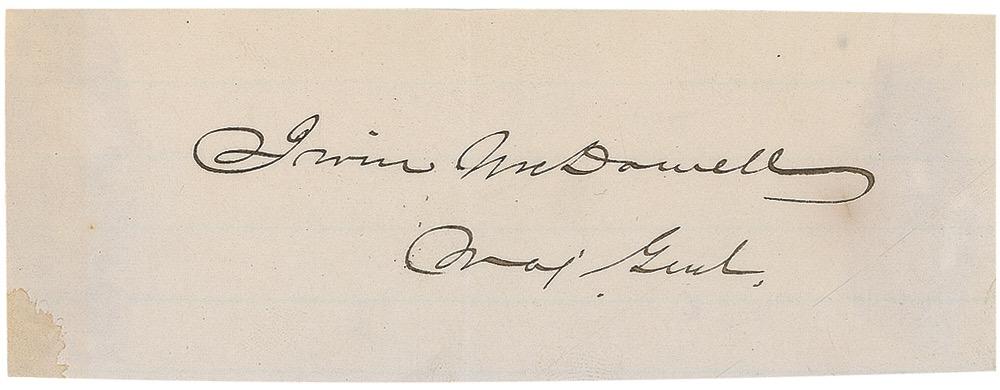 Irvin McDowell
Maj. Genl.